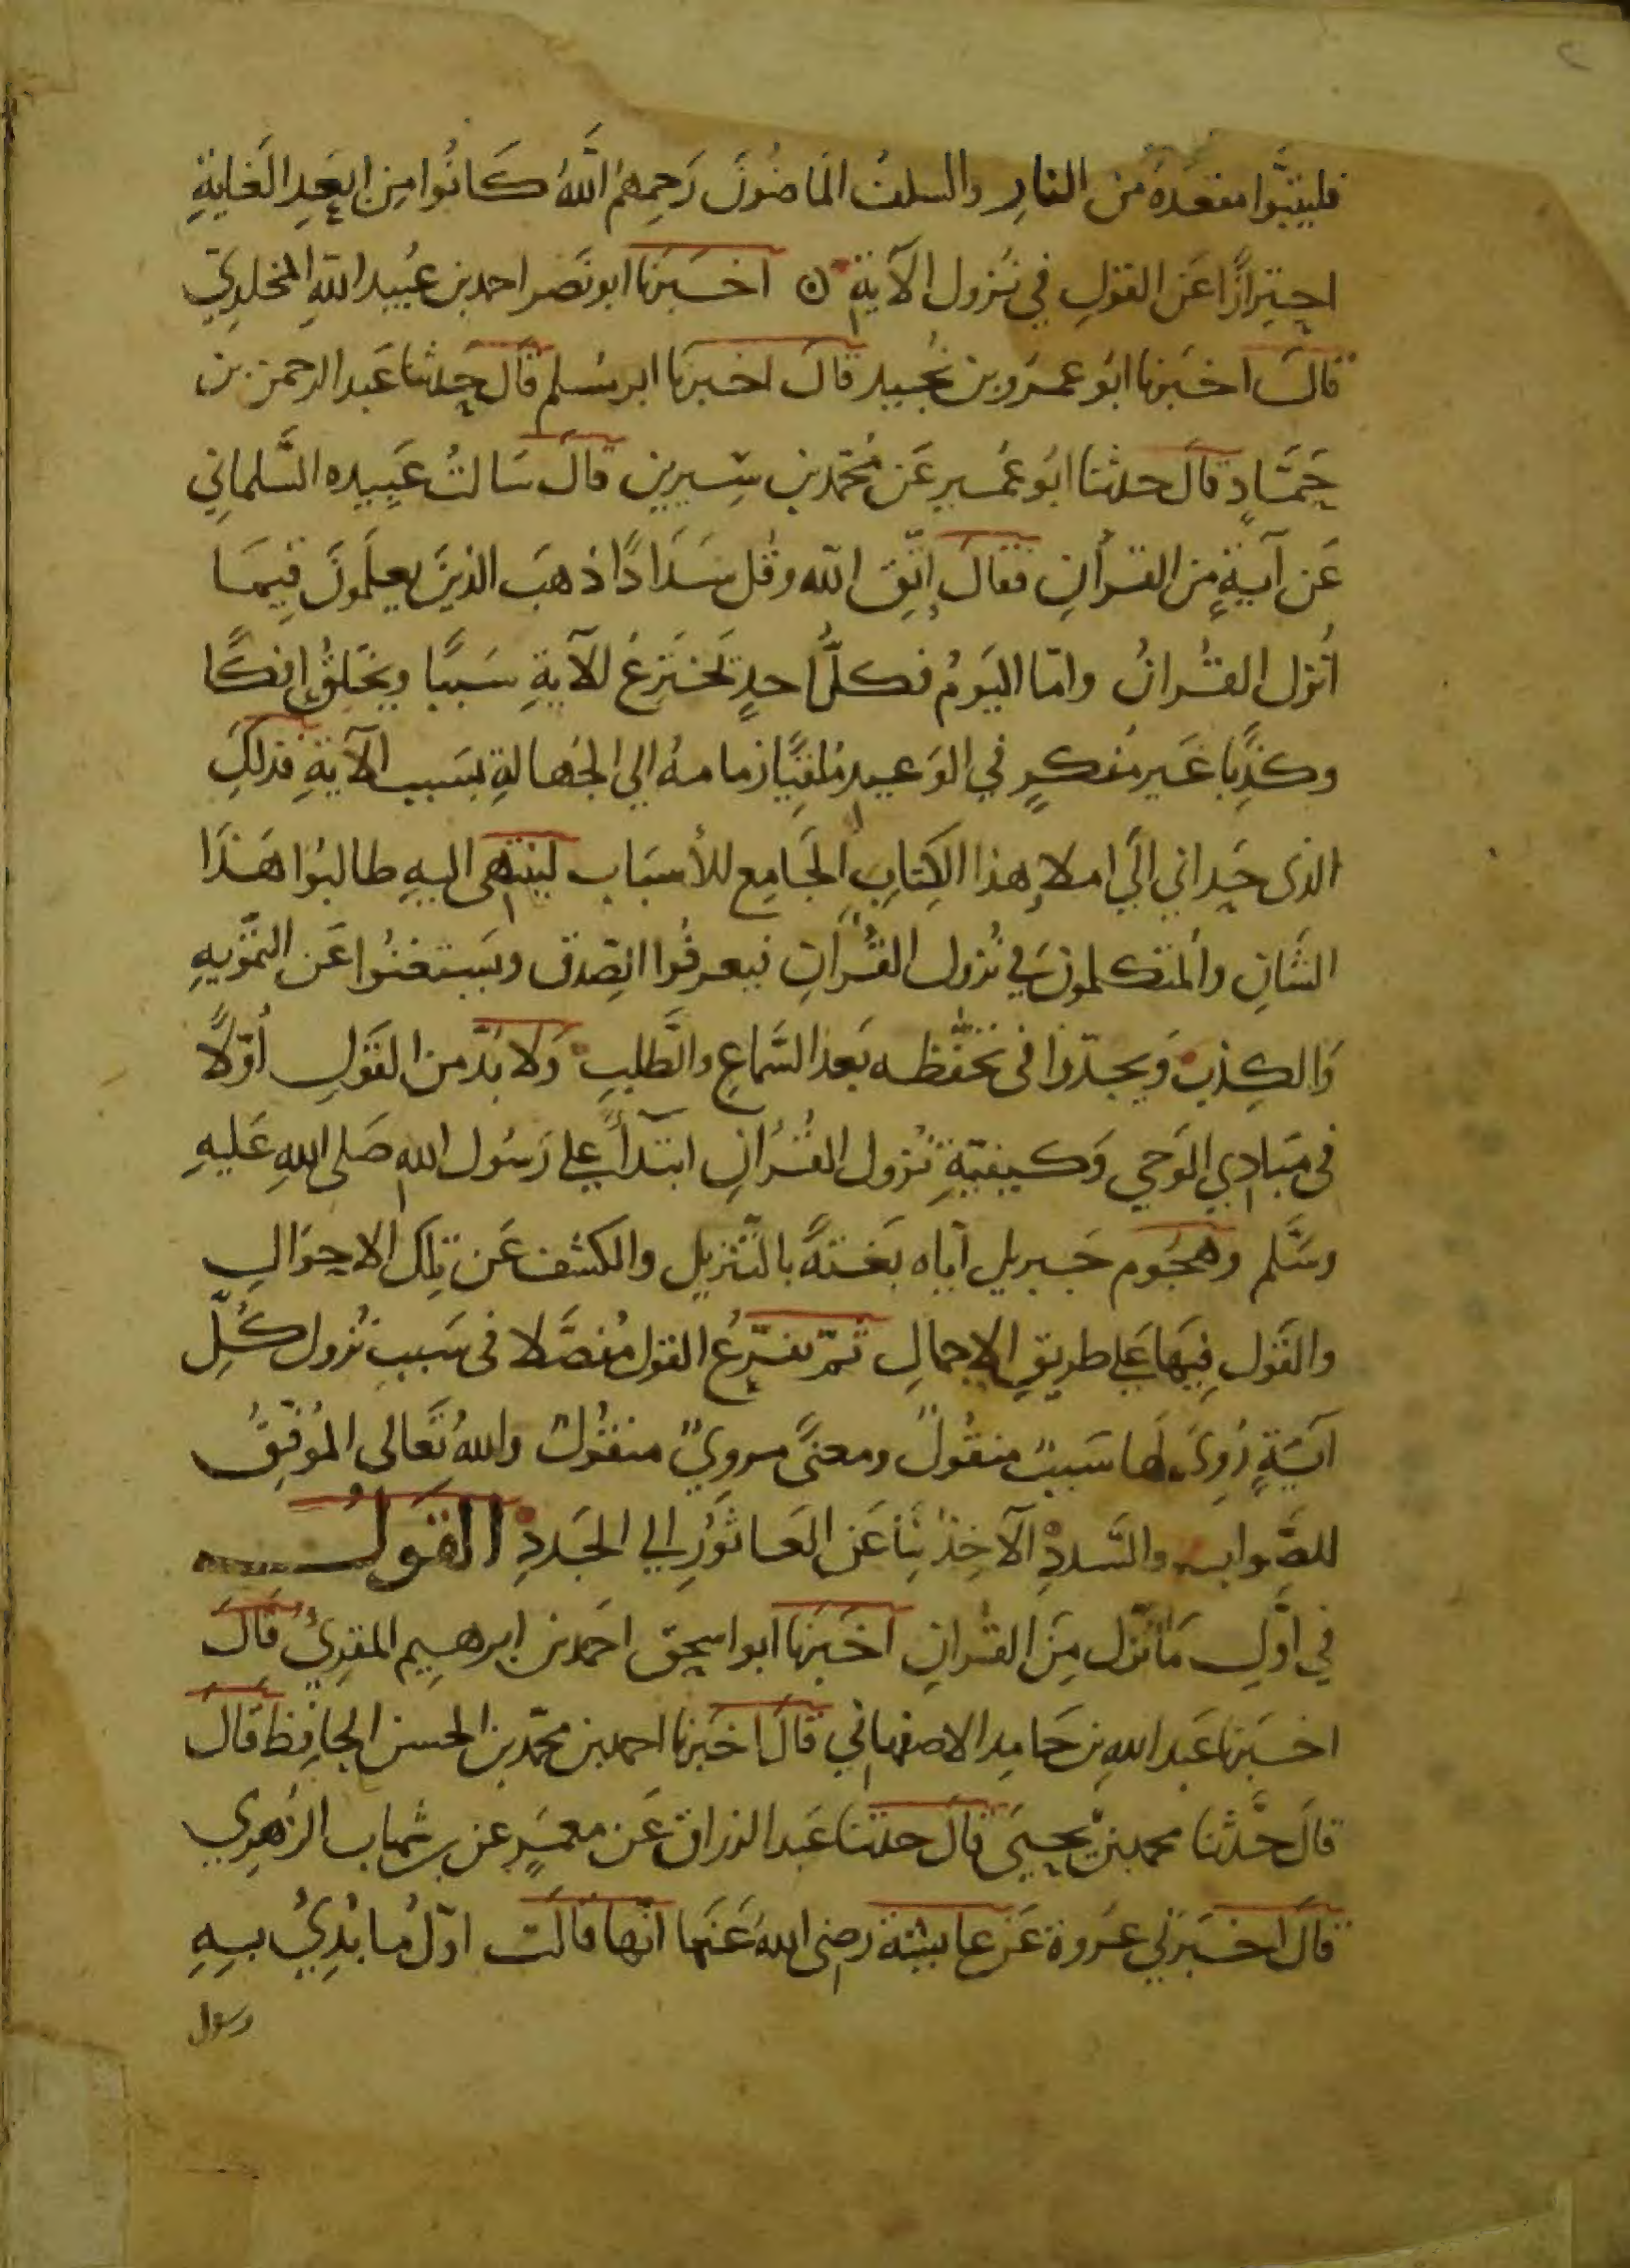 ٢
فليتبوا مقعده من النارِ والسلفُ الماضُونَ رَحِمِهُمُ اللَّهُ كَانُوا مِن ابعَدِ الغَايةِ
احتِرازًا عَن القولِ في نُزول الآيةِ ه اخبَرَنا ابو نَصْر احمد بن عُبيد اللهِ المخلدِيّ
قالَ اخبَرنا ابُو عمرو بن نُجَيد قالَ اخبرنا ابو مسلم قالَ حدثنا عَبد الرحمن بن
حَمَّادٍ قالَ حدثنا ابُو عُمَير عَن مُحمّد بن سِيرين قالَ سَالتُ عَبِيده السَّلماني
عَن آيةٍ مِن القرأنِ فقالَ اِتّقِ الله وقُل سَدَادًا ذهبَ الذينَ يعلَمونَ فِيمَا
أُنزل القُرانُ وامّا اليَومُ فكلُّ احدٍ يَختَرِعُ للآيةِ سَببًا ويَخلقُ اِفكًا
وكذِبًا غَير مُفكرٍ في الوَعيدِ مُلقيًا زمامهُ الي الجَهالةِ بسَبب الآيةِ فذلِكَ
الذى حَداني الَي املاءِ هذا الكِتابِ الجَامِع للأسبَاب لينتهى اليهِ طالبُوا هَذَا
الشَانِ والمُتكلمونَ في نُزول القُرآنِ فيعرفُوا الصِّدقَ ويَستغنُوا عَن التَّمويهِ
وَالكِذبِ وَيجدّوا فى تحفّظه بَعد السَّماعِ والطَّلبِ وَلا بُدَّ من القَولِ أوّلًا
فى مَبادِي الوَحي وَكيفيّةِ نُزول القُرْآنِ ابتدآءً علي رَسُول الله صَلى اللهِ عَليهِ
وسَلَّم وهجُوم جَبريل آياه بَغتةً بالتَّنزيل والكشْف عَن تِلكَ الاحوَالِ
والقَول فِيهَا عَلي طريقِ الاِجمالِ ثمّ تفرّعُ القول مُفصَّلا فى سَببِ نُزول كُلِّ
آيَةٍ رُوِىَ لهَا سَببٌ منقُولٌ ومعنًى مروِيٌّ منقُولٌ واللهُ تَعَالى المُوفّقُ
للصَّوابِ والسَّددِ الآخِذُ بِنَا عَن العَاثُورِ الي الجَددِ القَولُ
في اوَّلِ مَا نَزل مِنَ القُرانِ اخبَرنا ابو اسحق احمَد بن ابرهيم المقرِئُ قَالَ
اخبَرنا عَبد اللهِ بن حَامِد الاصفهاني قالَ اخبَرنا احمد بن محمّد بن الحسن الحافِظ قَالَ
قالَ حَدَّثنا محمد بن يحيَى قالَ حدثنا عَبد الرزاق عَن معمَرٍ عَن بن شهاب الزهرِي
قالَ اخبَرني عُروة عَن عايشة رضى اللهُ عَنها انّها قَالَت اوّلُ ما بُدِئُ بهِ
رسول